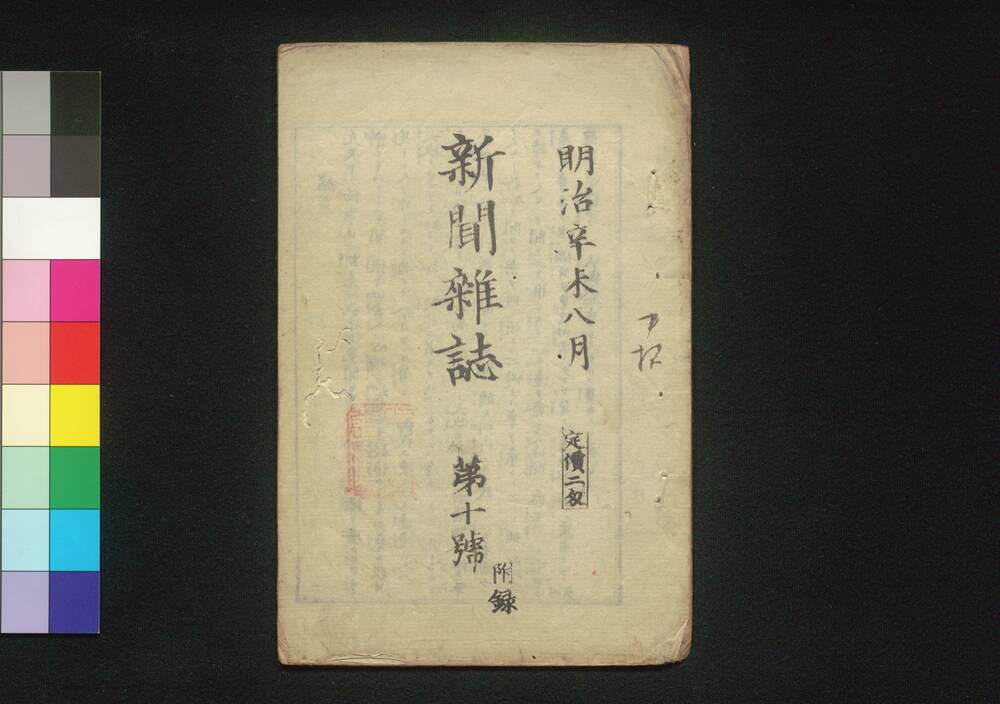 明治辛未八月
定價二匁
新聞雜誌 第十號
附録